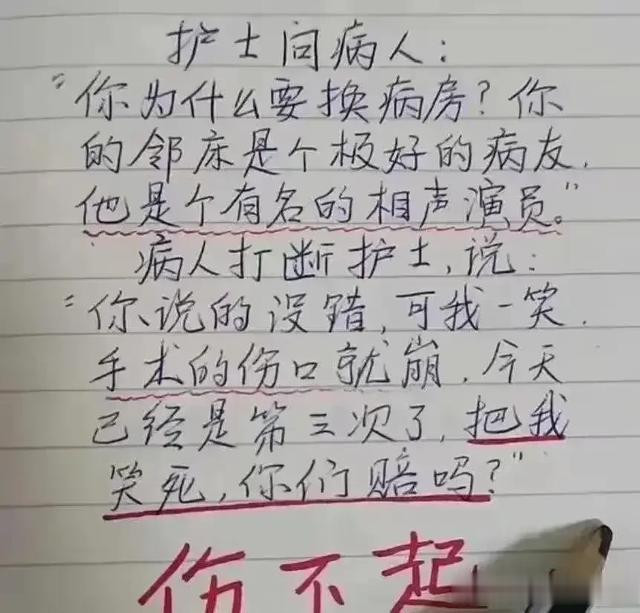 护士问病人：
“你为什么要换病房？你
的邻床是个极好的病友，
他是个有名的相声演员。”
病人打断护士，说：
“你说的没错，可我一笑，
手术的伤口就崩，今天
已经是第三次了，把我
笑死，你们赔吗？”
伤不起